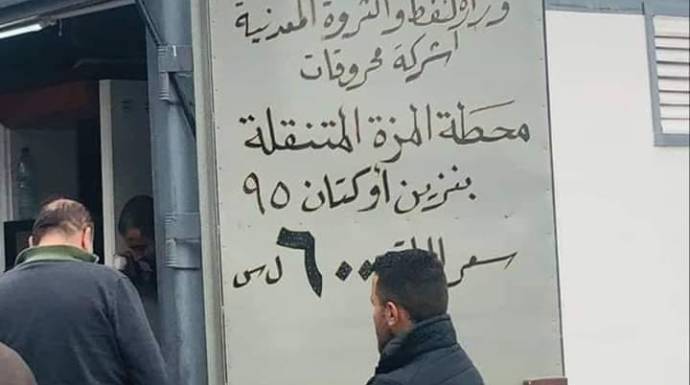 وزارة النفط والثروة المعدنية
شركة محروقات
محطة المزة المتنقلة
بنزين أوكتان ٩٥
سعر ٦٠٠٠ ل س